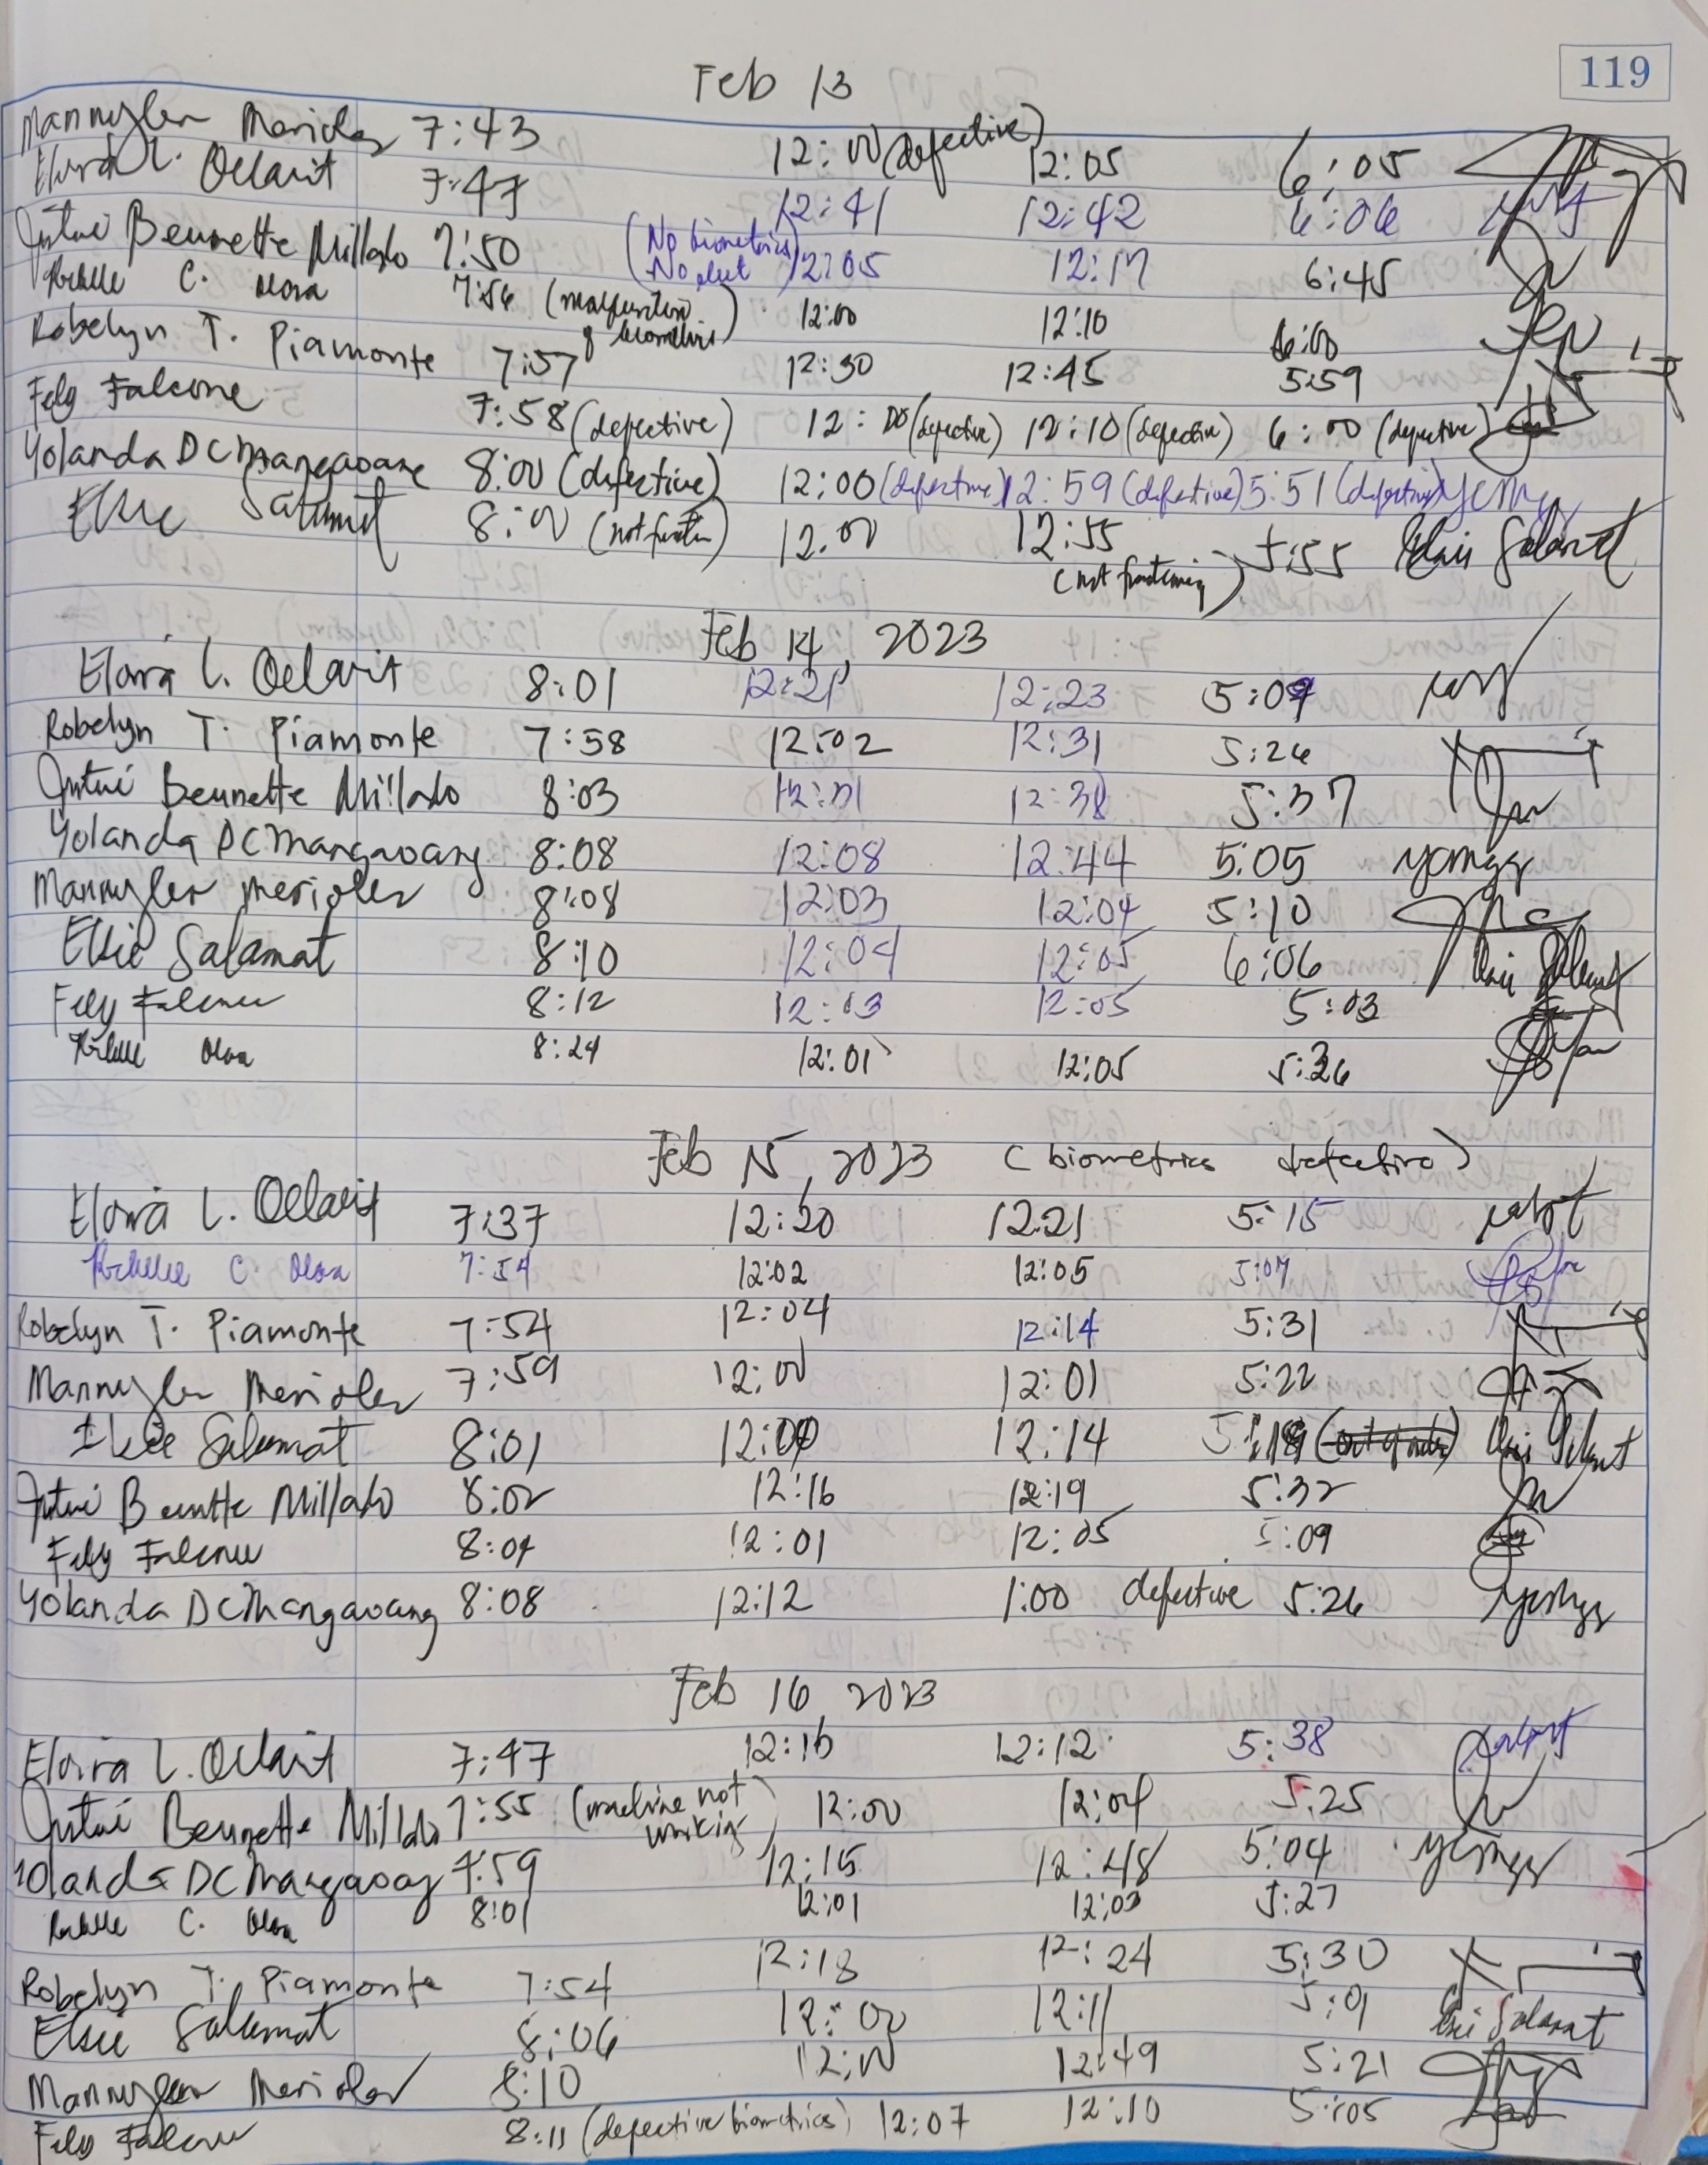 119
Feb 13
Mannyler Merioles 7:43 12:00 (defective) 12:05 6:05
Elvira L. Oclarit 7:47 12:41 12:42 6:06
Bennette Millado 7:50 (No biometrics No duct) 12:05 12:17 6:45
C. Olora 7:56 (malfunction of biometrics) 12:00 12:10 6:00
Robelyn T. Piamonte 7:57 12:30 12:45 5:59
Fely Falcone 7:58 (defective) 12:00 (defective) 12:10 (defective) 6:00 (defective)
Yolanda DC Mangaoang 8:00 (defective) 12:00 (defective) 12:59 (defective) 5:51 (defective)
Elsie Salamat 8:00 12:00 12:55 (not functioning) 5:55
Feb 14, 2023
Elvira L. Oclarit 8:01 12:21 12:23 5:09
Robelyn T. Piamonte 7:58 12:02 12:31 5:26
Bennette Millado 8:03 12:31 12:38 5:37
Yolanda DC Mangaoang 8:08 12:08 12:44 5:05
Mannyler Merioles 8:08 12:03 12:04 5:10
Elsie Salamat 8:10 12:04 12:05 6:06
Fely Falcone 8:12 12:03 12:05 5:03
8:24 12:01 12:05 5:26
Feb 15, 2023 (biometrics defective)
Elvira L. Oclarit 7:37 12:20 12:21 5:15
C. Olora 7:54 12:02 12:05 5:07
Robelyn T. Piamonte 7:54 12:04 12:14 5:31
Mannyler Merioles 7:59 12:00 12:01 5:22
Elsie Salamat 8:01 12:14
Bennette Millado 8:02 12:16 12:19 5:32
Fely Falcone 8:04 12:01 12:05 5:09
Yolanda DC Mangaoang 8:08 12:12 1:00 defective 5:26
Feb 16, 2023
Elvira L. Oclarit 7:47 12:12 5:38
Bennette Millado 7:55 (machine not working) 12:00 12:04 5:25
Yolanda DC Mangaoang 7:59 12:15 12:48 5:04
C. Olora 8:01 12:01 12:03 5:27
Robelyn T. Piamonte 7:54 12:18 12:24 5:30
Elsie Salamat 8:06 12:00 12:11 5:01
Mannyler Merioles 8:10 12:00 12:49 5:21
Fely Falcone 8:11 (defective biometrics) 12:07 12:10 5:05